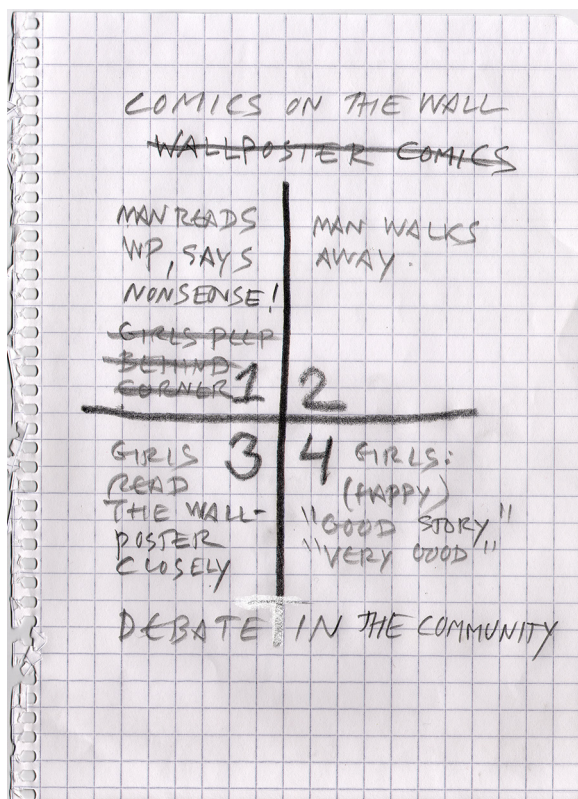 COMICS ON THE WALL
WALLPOSTER COMICS
MAN READS
WP, SAYS
NONSENSE!
GIRLS PEEP
BEHIND
CORNER 1
MAN WALKS
AWAY.
2
GIRLS 3
READ
THE WALL-
POSTER
CLOSELY
4 GIRLS:
(HAPPY)
"GOOD STORY"
"VERY GOOD"
DEBATE IN THE COMMUNITY